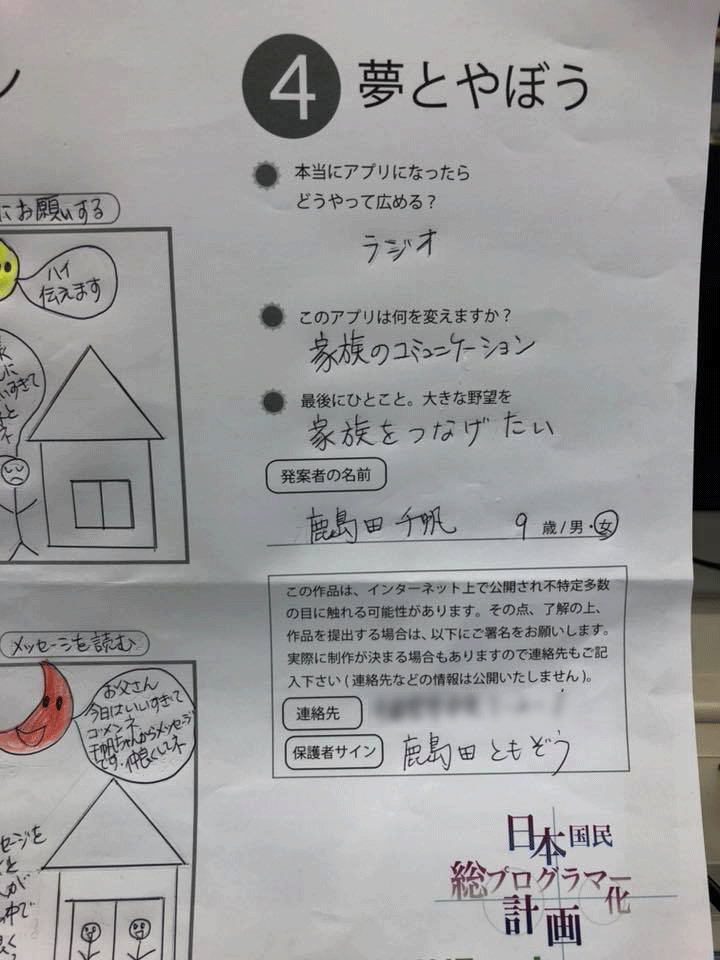 4 夢とやぼう
本当にアプリになったら
どうやって広める？
ラジオ
このアプリは何を変えますか？
家族のコミュニケーション
最後にひとこと。大きな野望を
家族をつなげたい
発案者の名前
鹿島田 千帆 9 歳 / 男・女
この作品は、インターネット上で公開され不特定多数
の目に触れる可能性があります。その点、了解の上、
作品を提出する場合は、以下にご署名をお願いします。
実際に制作が決まる場合もありますので連絡先もご記
入下さい ( 連絡先などの情報は公開いたしません )。
連絡先
保護者サイン 鹿島田 ともぞう
日本国民
総プログラマー化
計画
にお願いする
ハイ
伝えます
メッセージを読む
お父さん
今日はいいすぎて
ゴメンネ
千帆ちゃんからメッセージ
です・仲良くしてネ